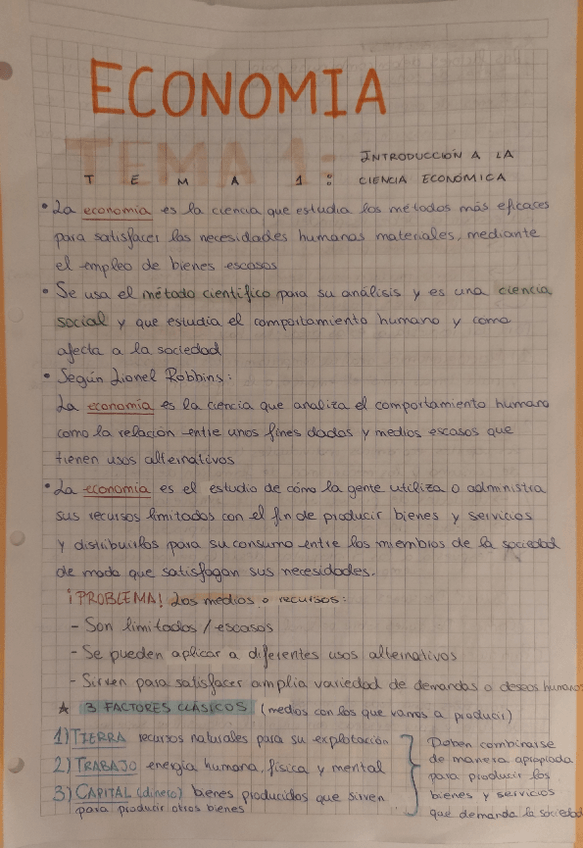 ECONOMIA
TEMA 1: INTRODUCCIÓN A LA
CIENCIA ECONÓMICA
• La economía es la ciencia que estudia los métodos más eficaces
para satisfacer las necesidades humanas materiales, mediante
el empleo de bienes escasos
• Se usa el método científico para su análisis y es una ciencia
social y que estudia el comportamiento humano y como
afecta a la sociedad
• Según Lionel Robbins:
La economía es la ciencia que analiza el comportamiento humano
como la relación entre unos fines dados y medios escasos que
tienen usos alternativos
• La economía es el estudio de cómo la gente utiliza o administra
sus recursos limitados con el fin de producir bienes y servicios
y distribuirlos para su consumo entre los miembros de la sociedad
de modo que satisfagan sus necesidades.
¡PROBLEMA! Los medios o recursos:
- Son limitados / escasos
- Se pueden aplicar a diferentes usos alternativos
- Sirven para satisfacer amplia variedad de demandas o deseos humanos
★ 3 FACTORES CLÁSICOS (medios con los que vamos a producir)
1) TIERRA recursos naturales para su explotación
2) TRABAJO energía humana, física y mental
3) CAPITAL (dinero) bienes producidos que sirven
para producir otros bienes
Deben combinarse
de manera apropiada
para producir los
bienes y servicios
que demanda la sociedad